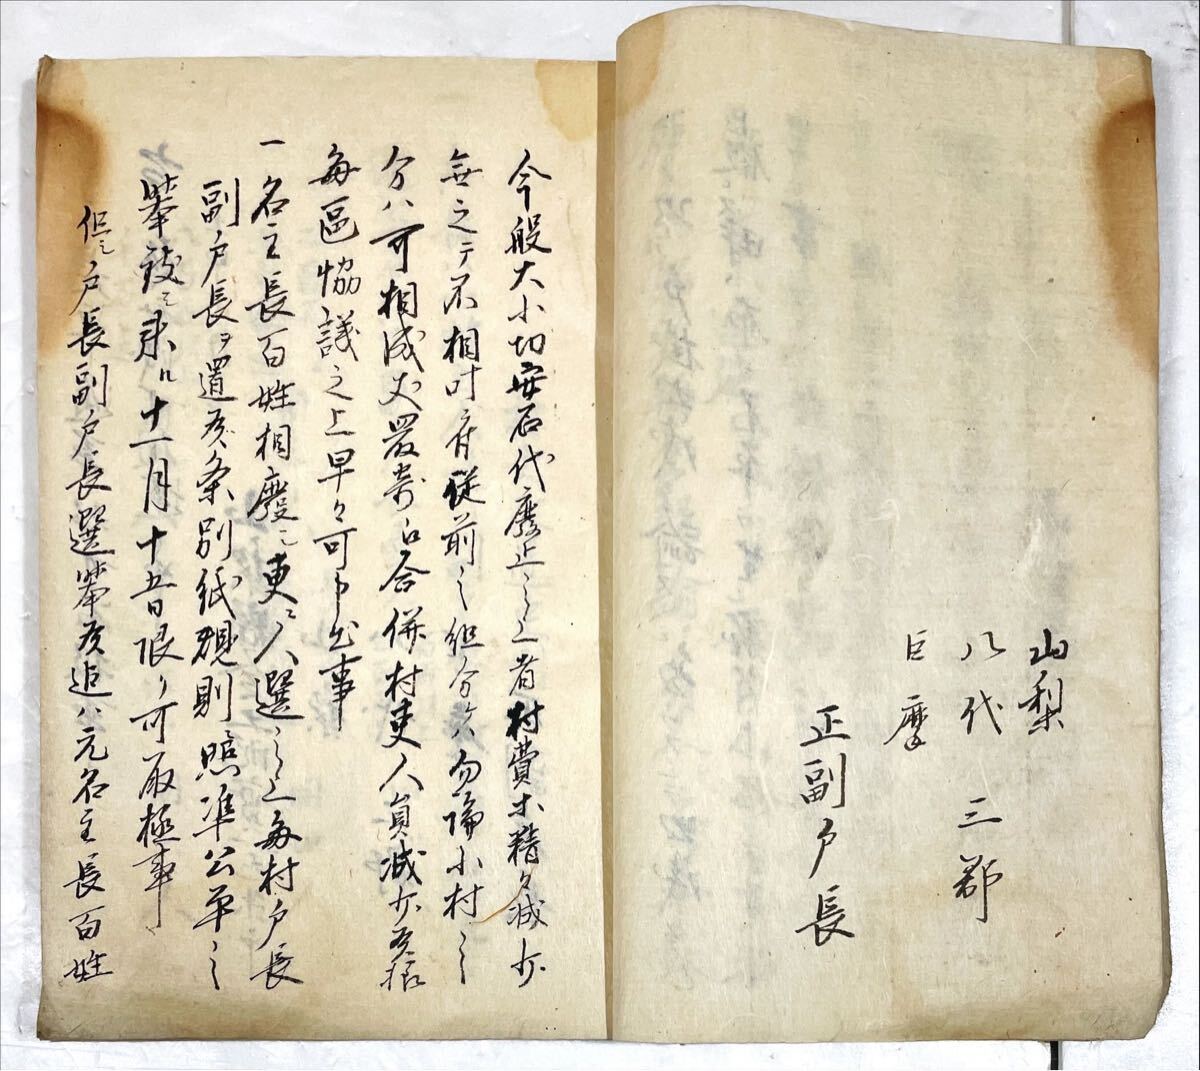 山梨
八代 三郡
巨摩
正副戸長
今般大小切安石代廃止之上者村費等精々減少
無之テ不相叶府従前之組分ケハ勿論小村之
分ハ可相成丈最寄ニ合併村吏人員減少致様
毎區協議之上早々可申出事
一名主長百姓相廢シ更ニ人選之上毎村戸長
副戸長ヲ置候条別紙規則照準公平ニ
挙致シ来ル十一月十五日限リ可取極事
但シ戸長副戸長選挙候迄ハ元名主長百姓